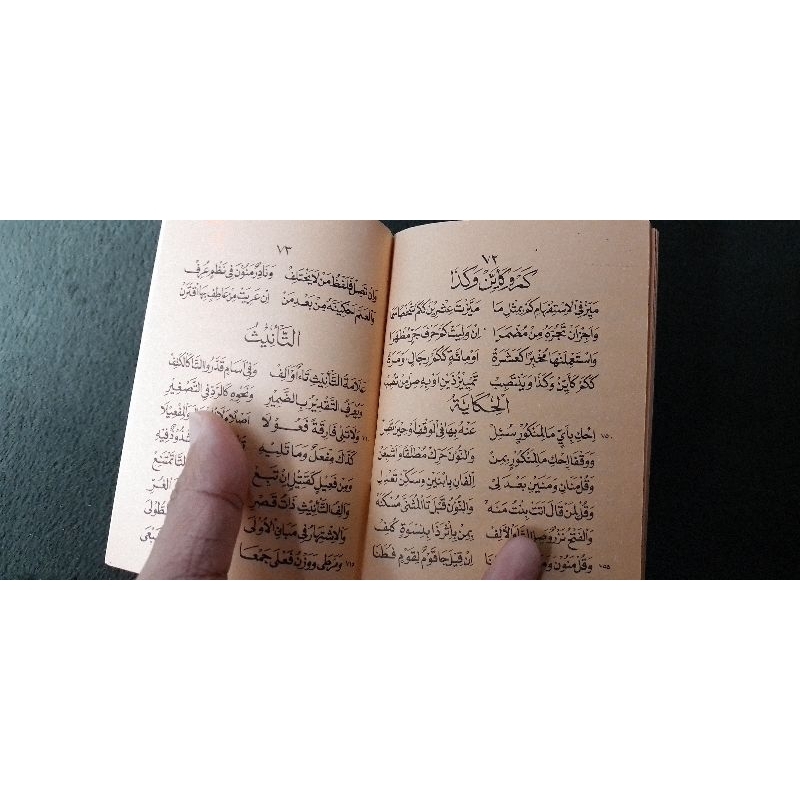 ٧٢
كم وكأين وكذا
ميز في الاستفهام كم بمثل ما ميزت عشرين ككم شخصا سما
واجز ان تجره من مضمرا ان وليت كم حرف جر مظهرا
واستعملنها مخبرا كعشره او مائة ككم رجال او مره
ككم كأين وكذا وينتصب تمييز ذين او به صل من تصب
الحكاية
٧٥٠ احك باي ما لمنكور سئل عنه بها في الوقف او حين تصل
ووقفا احك ما لمنكور بمن والنون حرك مطلقا واشبعن
وقل منان ومنين بعد لي الفان بابنين وسكن تعدل
وقل لمن قال اتت بنت منه والنون قبل تا المثنى مسكنه
والفتح نزر وصل التا والالف بمن باثر ذا بنسوة كلف
٧٥٥ وقل منون ومنين ان قيل جا قوم لقوم فطنا
٧٣
وان تصل فلفظ من لا يختلف ونادر منون في نظم عرف
والعلم احكينه من بعد من ان عريت من عاطف بها اقترن
التأنيث
علامة التأنيث تاء او الف وفي اسام قدروا التا كالكتف
ويعرف التقدير بالضمير ونحوه كالرد في التصغير
ولا تلي فارقة فعولا اصلا ولا المفعيلا
كذاك مفعل وما تليه شذوذ فيه
ومن فعيل كقتيل ان تبع التا تمتنع
والف التأنيث ذات قصر الغر
والاشتهار في مباني الاولى والطولى
٧٦٥ ومرطى ووزن فعلى جمعا